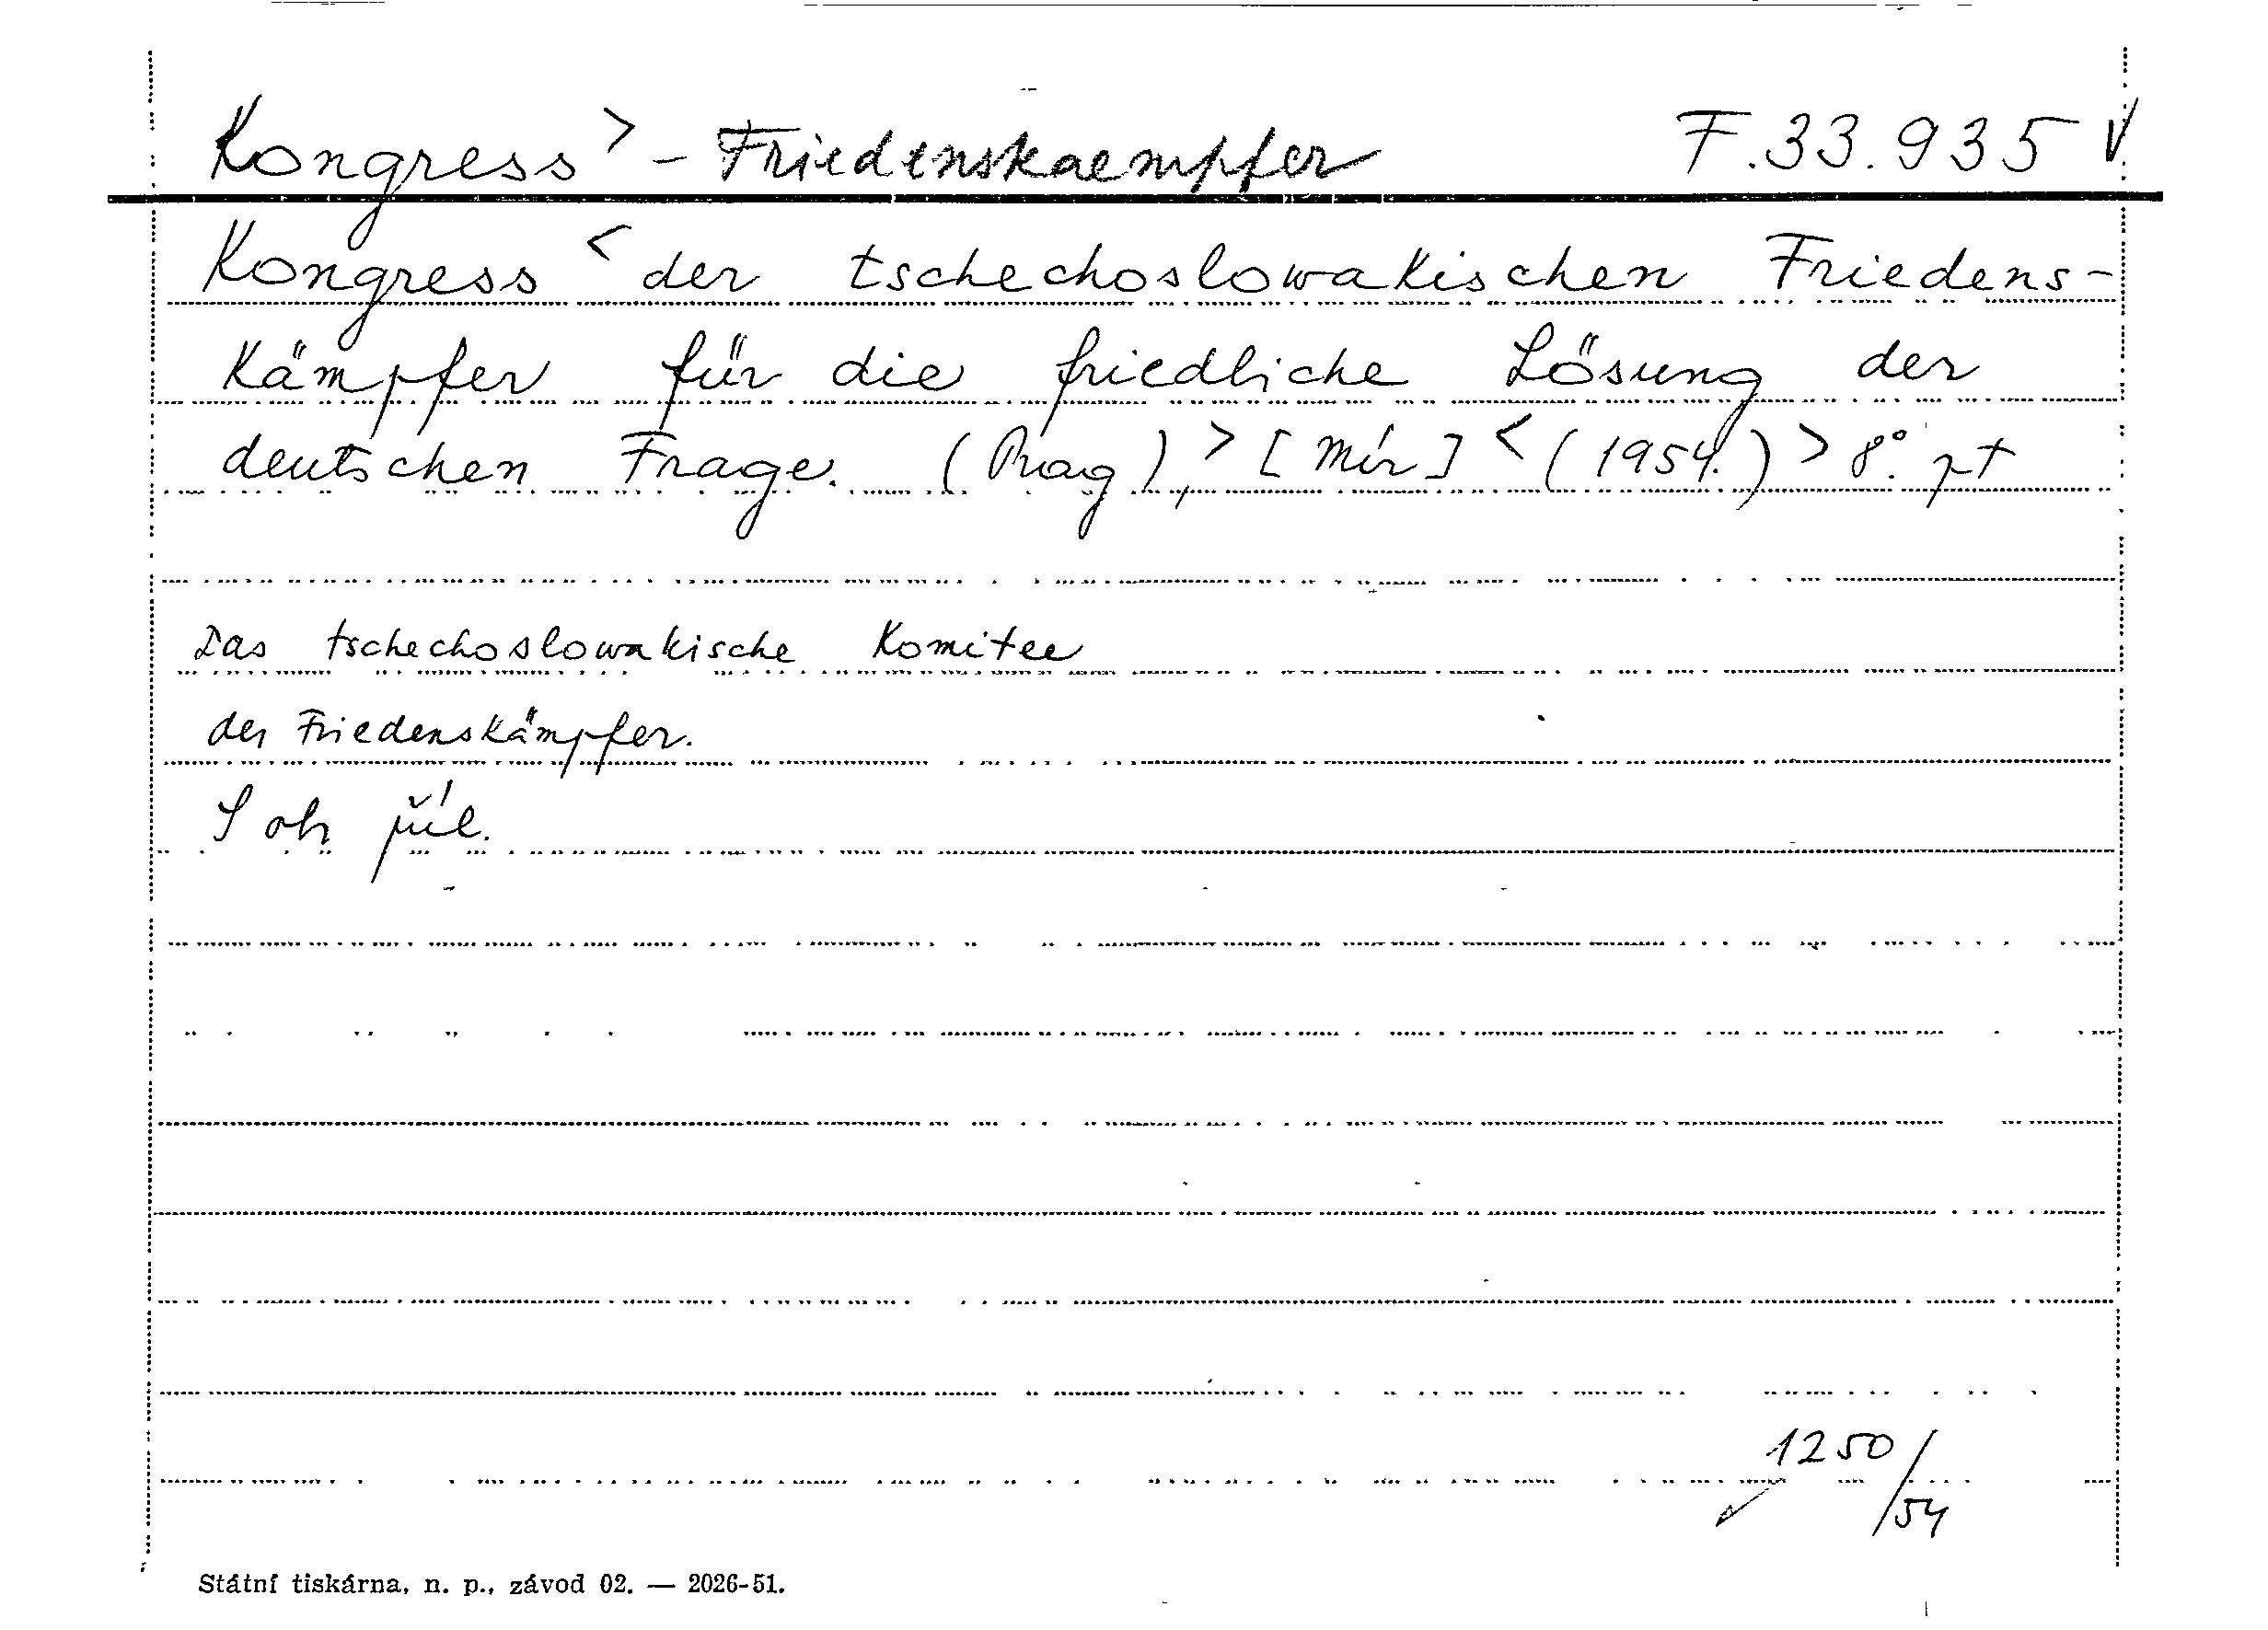 Kongress > - Friedenskaempfer F.33.935 V.
Kongress < der tschechoslowakischen Friedens-
kämpfer für die friedliche Lösung der
deutschen Frage. (Prag), > [Mír] < (1954.) > 8°.
Das tschechoslowakische Komitee
der Friedenskämpfer.
S obr příl.
1250/
/54
Státní tiskárna, n. p., závod 02. — 2026-51.